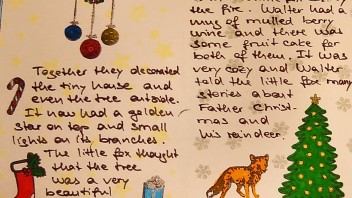 Together they decorated
the tiny house and
even the tree outside.
It now had a golden
star on top and small
lights on its branches.
The little fox thought
that the tree
was a very
beautiful
the fire. Walter had a
mug of mulled berry
wine and there was
some fruit cake for
both of them. It was
very cozy and Walter
told the little fox many
stories about
Father Christ-
mas and
his reindeer.